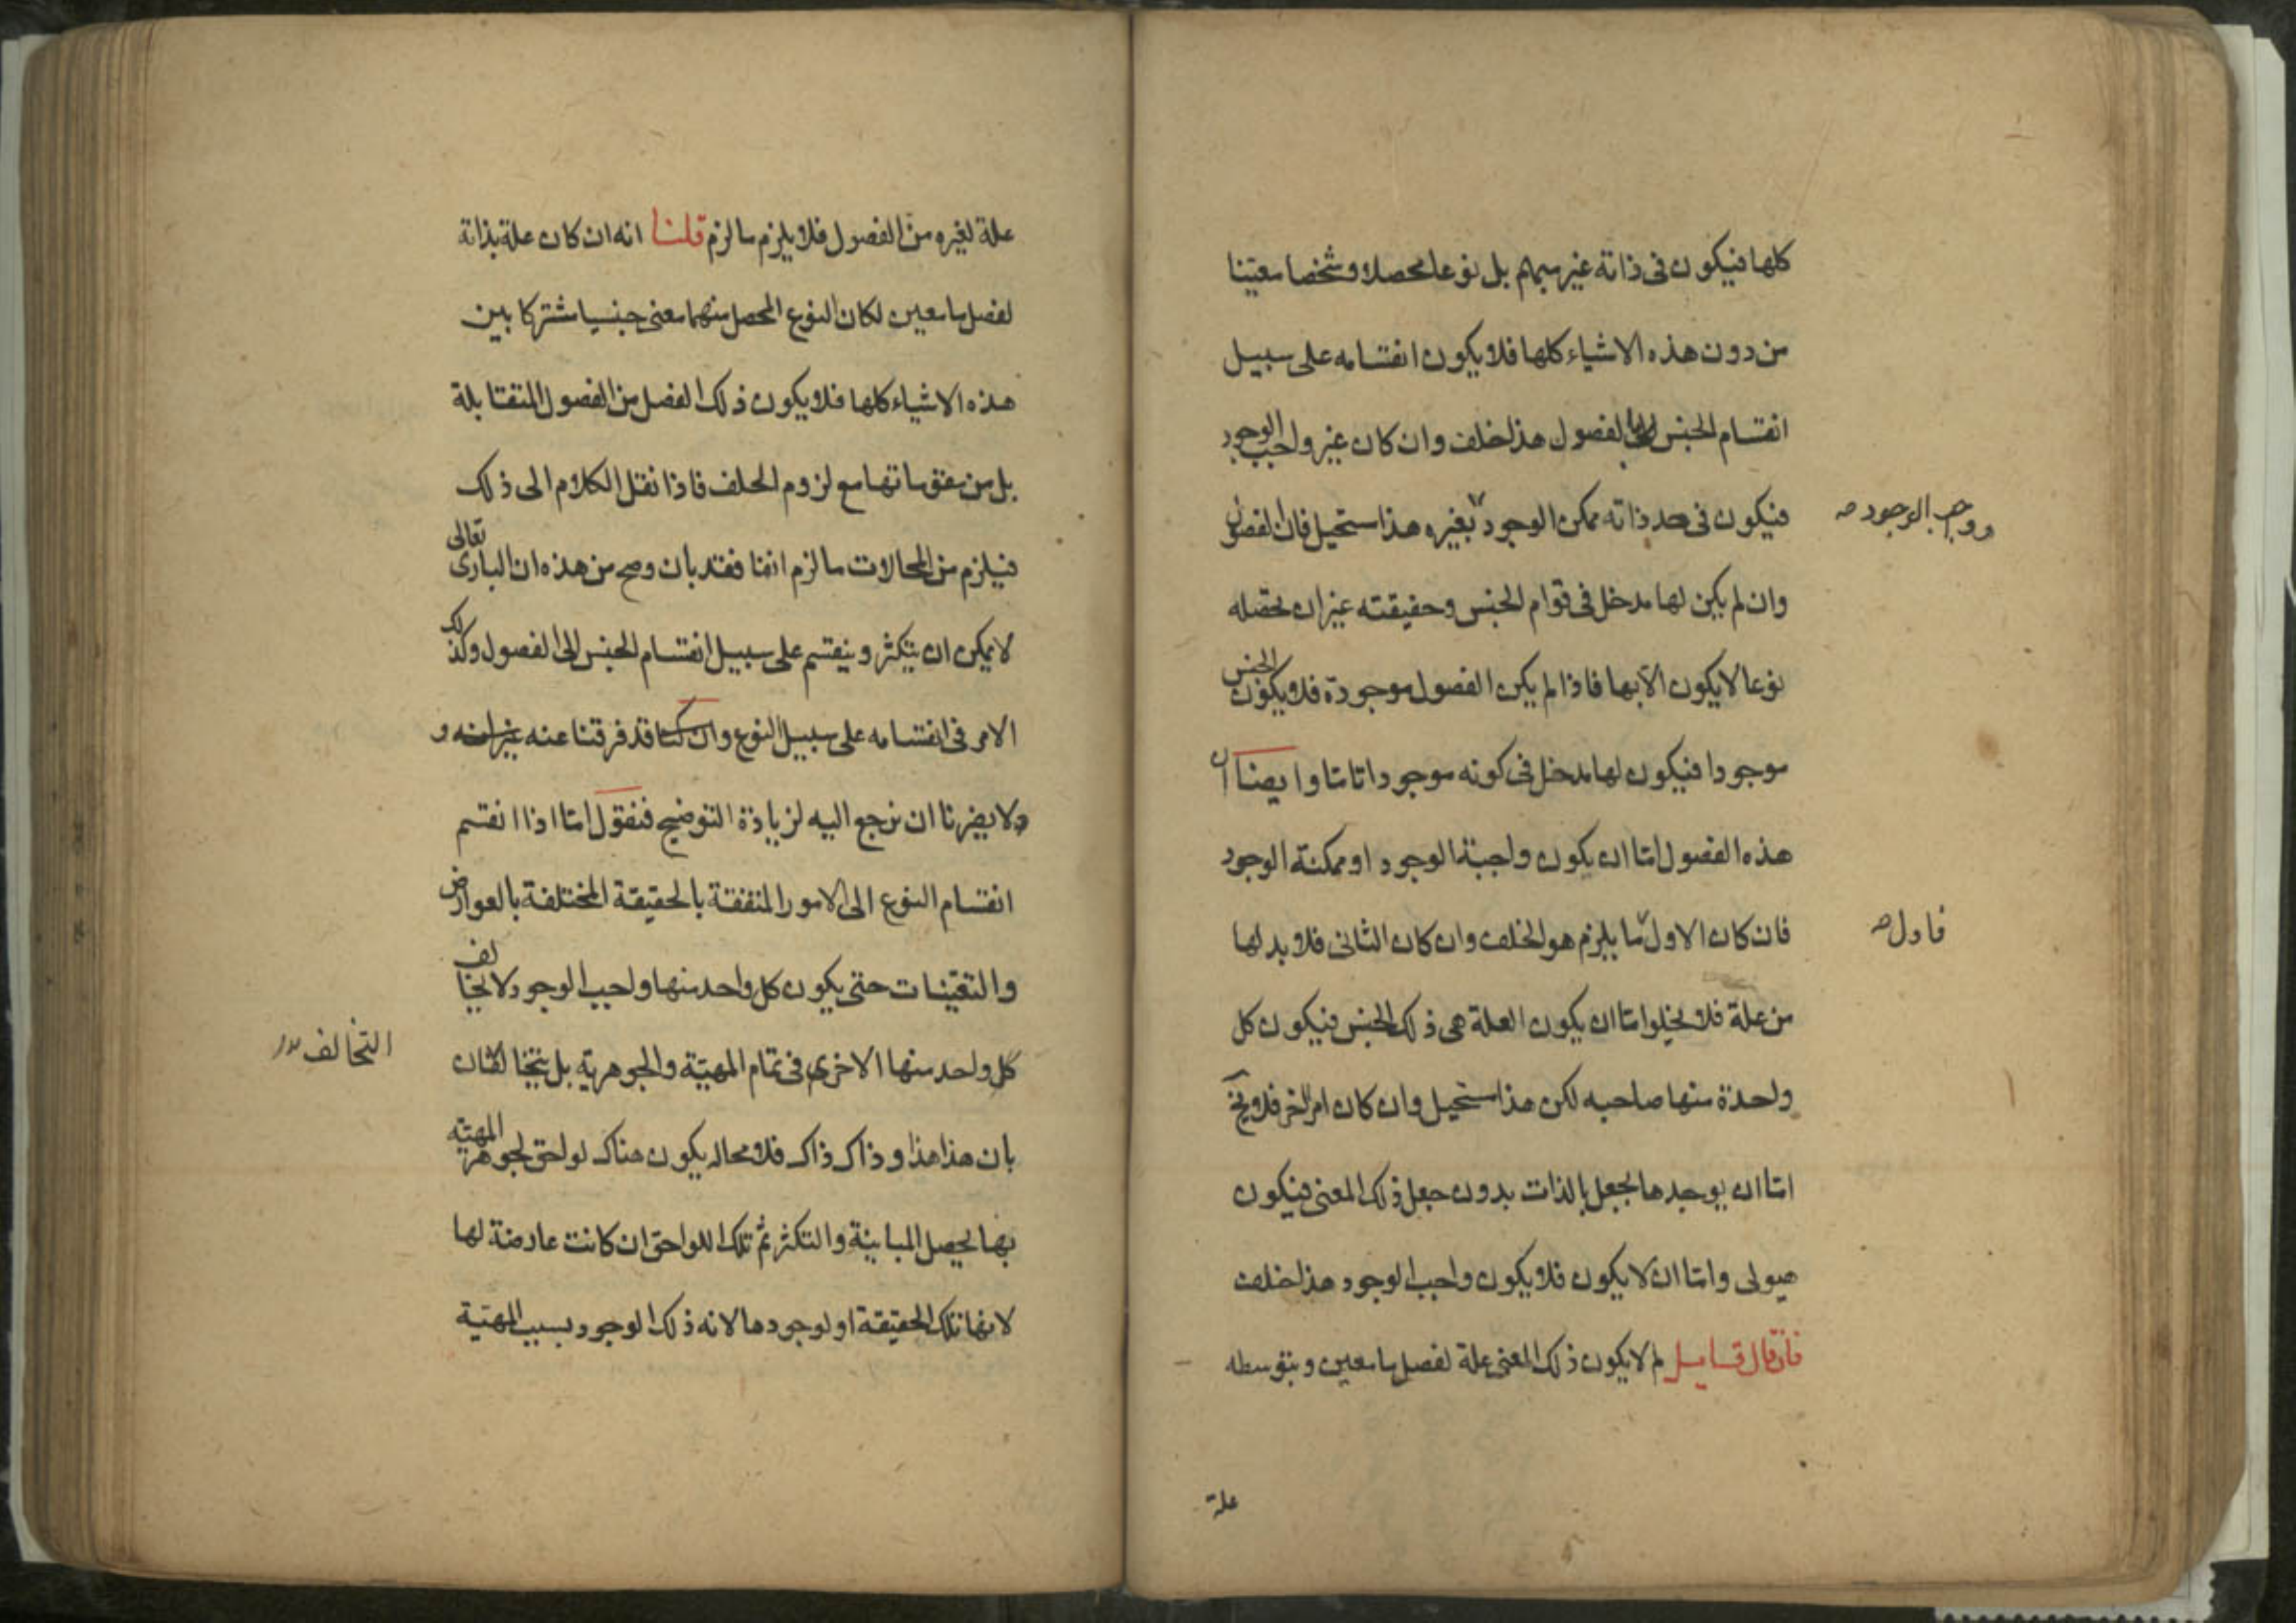 كلها فيكون فى ذاته غير مبهم بل نوعا محصلا وشخصا معينا
من دون هذه الاشياء كلها فلا يكون انقسامه على سبيل
انقسام الجنس الى الفصول هذا خلف وان كان غير واجب الوجود
فيكون فى حد ذاته ممكن الوجود بغيره هذا مستحيل فان الفصول
ووجب الوجود
وان لم يكن لها مدخل فى قوام الجنس وحقيقته غير ان تحصله
نوعا لا يكون الا بها فاذا لم يكن الفصول موجودة فلا يكون الجنس
موجودا فيكون لها مدخل فى كونه موجودا تاما وايضا ان
هذه الفصول اما ان يكون واجبة الوجود او ممكنة الوجود
فان كان الاول ما يلزم هو الخلف وان كان الثانى فلا بد لها
فاول
من علة فلا يخلوا اما ان يكون العلة هى ذلك الجنس فيكون كل
واحدة منها صاحبه لكن هذا مستحيل وان كان امر اخر فلا يخ
اما ان يوجدها بجعل بالذات بدون جعل ذلك المعنى فيكون
هيولى واما ان لا يكون فلا يكون واجب الوجود هذا خلف
فان قال قايل لم لا يكون ذلك المعنى علة لفصل ما معين وبتوسطه
علة
علة لغيره من الفصول فلا يلزم ما لزم قلنا انه ان كان علة بذاته
لفصل ما معين لكان النوع المحصل منهما معنى جنسيا مشتركا بين
هذه الاشياء كلها فلا يكون ذلك الفصل من الفصول المتقابلة
بل من مقوماتها مع لزوم الخلف فاذا نقل الكلام الى ذلك
فيلزم من المحالات ما لزم انفا فقد بان وصح من هذه ان البارى تعالى
لا يمكن ان يتكثر وينقسم على سبيل انقسام الجنس الى الفصول وكذلك
الامر فى انقسامه على سبيل النوع وان كنا قد فرقنا عنه غير انه و
ولا يضرنا ان نرجع اليه لزيادة التوضيح فنقول اما اذا انقسم
انقسام النوع الى الامور المتفقة بالحقيقة المختلفة بالعوارض
والتعينات حتى يكون كل واحد منها واجب الوجود لا يخالف
كل واحد منها الاخرى فى تمام المهية والجوهرية بل يتخالفان
التخالف
بان هذا هذا وذاك ذاك فلا محاله يكون هناك لواحق لجوهر المهية
بها يحصل المباينة والتكثر ثم تلك اللواحق ان كانت عارضة لها
لانها تلك الحقيقة او لوجودها لانه ذلك الوجود بسبب المهية